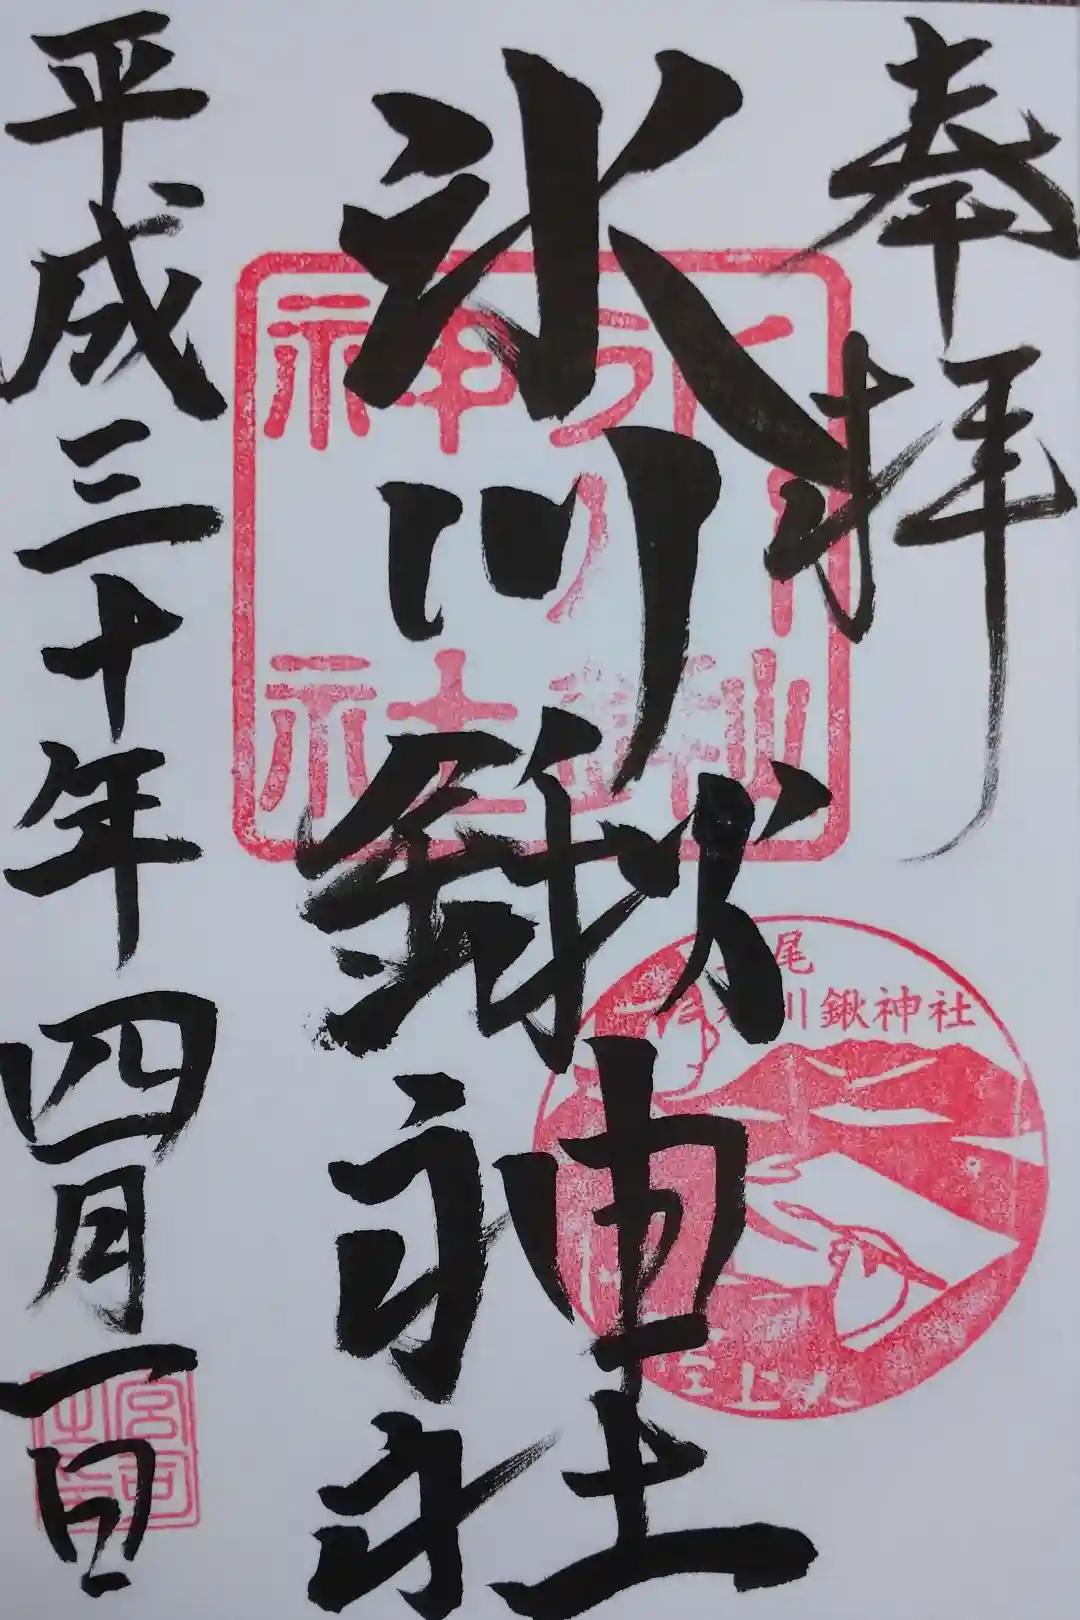 奉拝
氷川鍬神社
平成三十年四月一日
氷川
鍬
神社
上尾
氷川鍬神社
宮司
之印